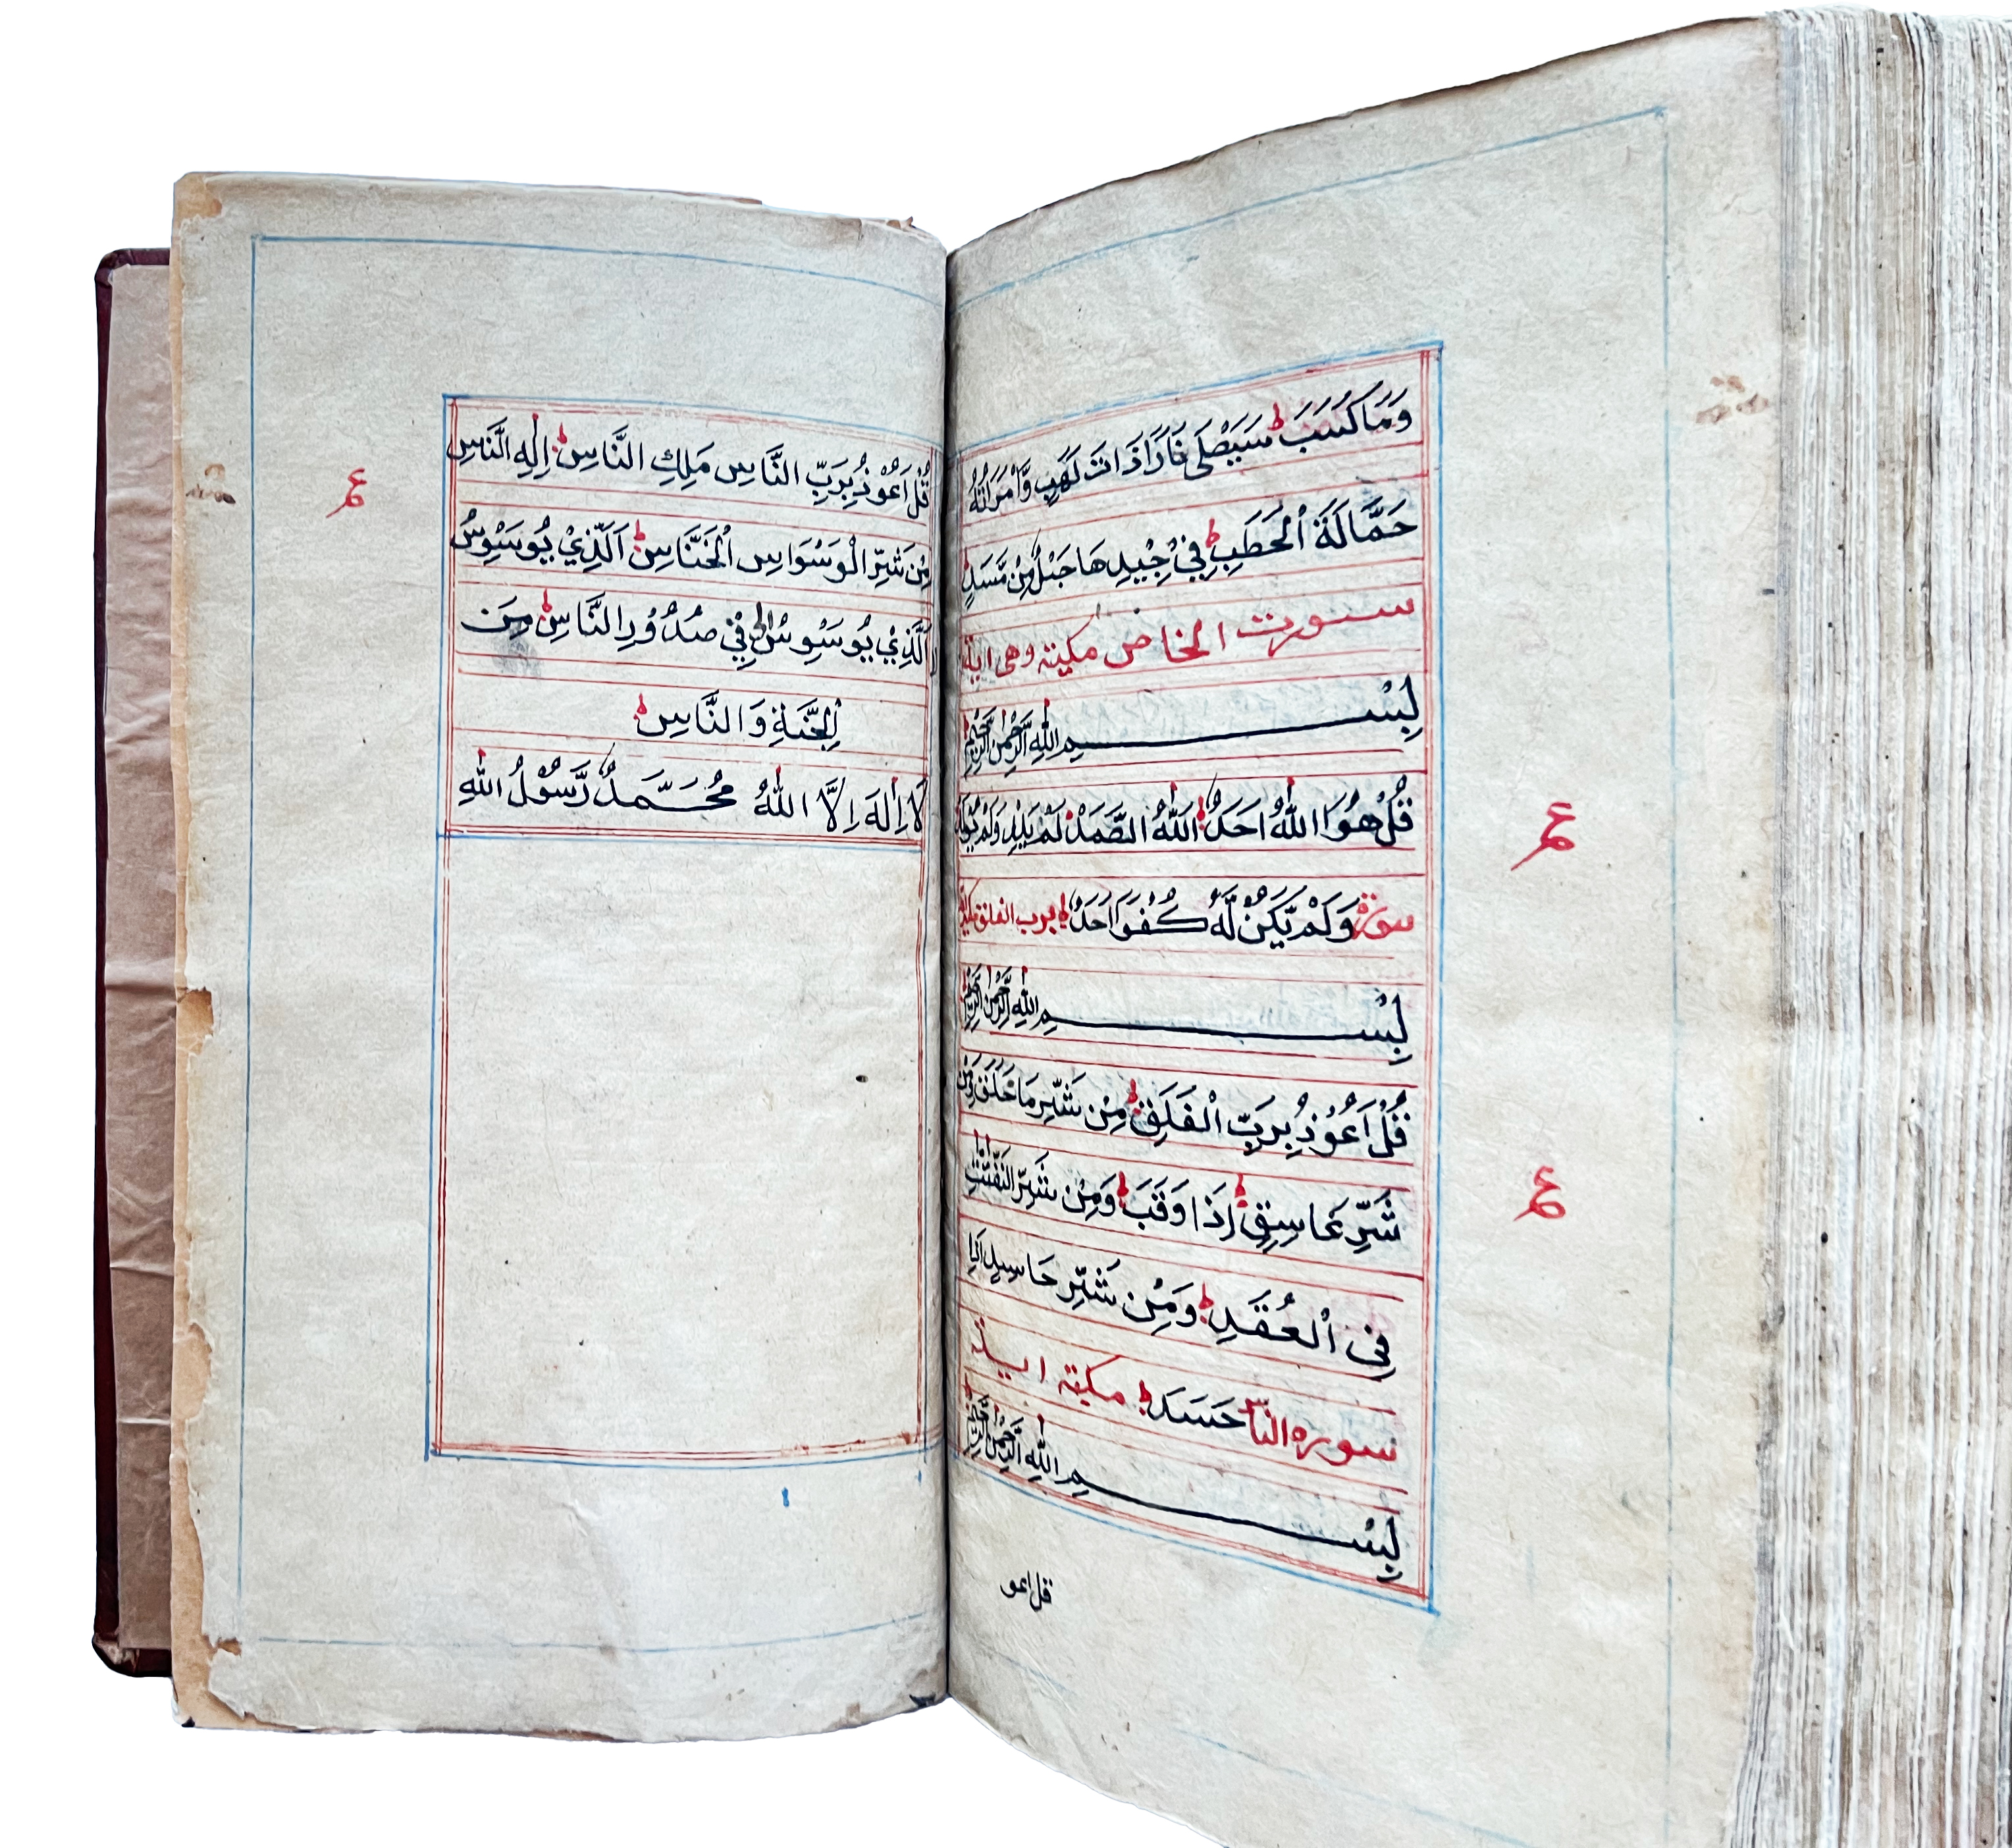 وَمَا كَسَبَ سَيَصْلَى نَارًا ذَاتَ لَهَبٍ وَّامْرَاَتُهُ
حَمَّالَةَ الْحَطَبِ فِيْ جِيْدِهَا حَبْلٌ مِّنْ مَّسَدٍ
سورت الخاص مكيته وهى اية
بِسْــــــمِ اللهِ الرَّحْمٰنِ الرَّحِيْمِ
قُلْ هُوَ اللهُ اَحَدٌ اَللهُ الصَّمَدْ لَمْ يَلِدْ وَلَمْ يُوْلَدْ
سورة وَلَمْ يَكُنْ لَّهُ كُفُوًا اَحَدٌ برب الفلق مكية
بِسْــــــمِ اللهِ الرَّحْمٰنِ الرَّحِيْمِ
قُلْ اَعُوْذُ بِرَبِّ الْفَلَقِ مِنْ شَرِّ مَا خَلَقَ وَمِنْ
شَرِّ غَاسِقٍ اِذَا وَقَبَ وَمِنْ شَرِّ النَّفّٰثٰتِ
فِى الْعُقَدِ وَمِنْ شَرِّ حَاسِدٍ اِذَا
سوره الناس حَسَدَ مكيته اية
بِسْــــــمِ اللهِ الرَّحْمٰنِ الرَّحِيْمِ
قل اعو
قُلْ اَعُوْذُ بِرَبِّ النَّاسِ مَلِكِ النَّاسِ اِلٰهِ النَّاسِ
مِنْ شَرِّ الْوَسْوَاسِ الْخَنَّاسِ اَلَّذِيْ يُوَسْوِسُ
الَّذِيْ يُوَسْوِسُ فِيْ صُدُوْرِ النَّاسِ مِنَ
الْجِنَّةِ وَالنَّاسِ
لَا اِلٰهَ اِلَّا اللهُ مُحَمَّدٌ رَّسُوْلُ اللهِ
ع
ع
ع